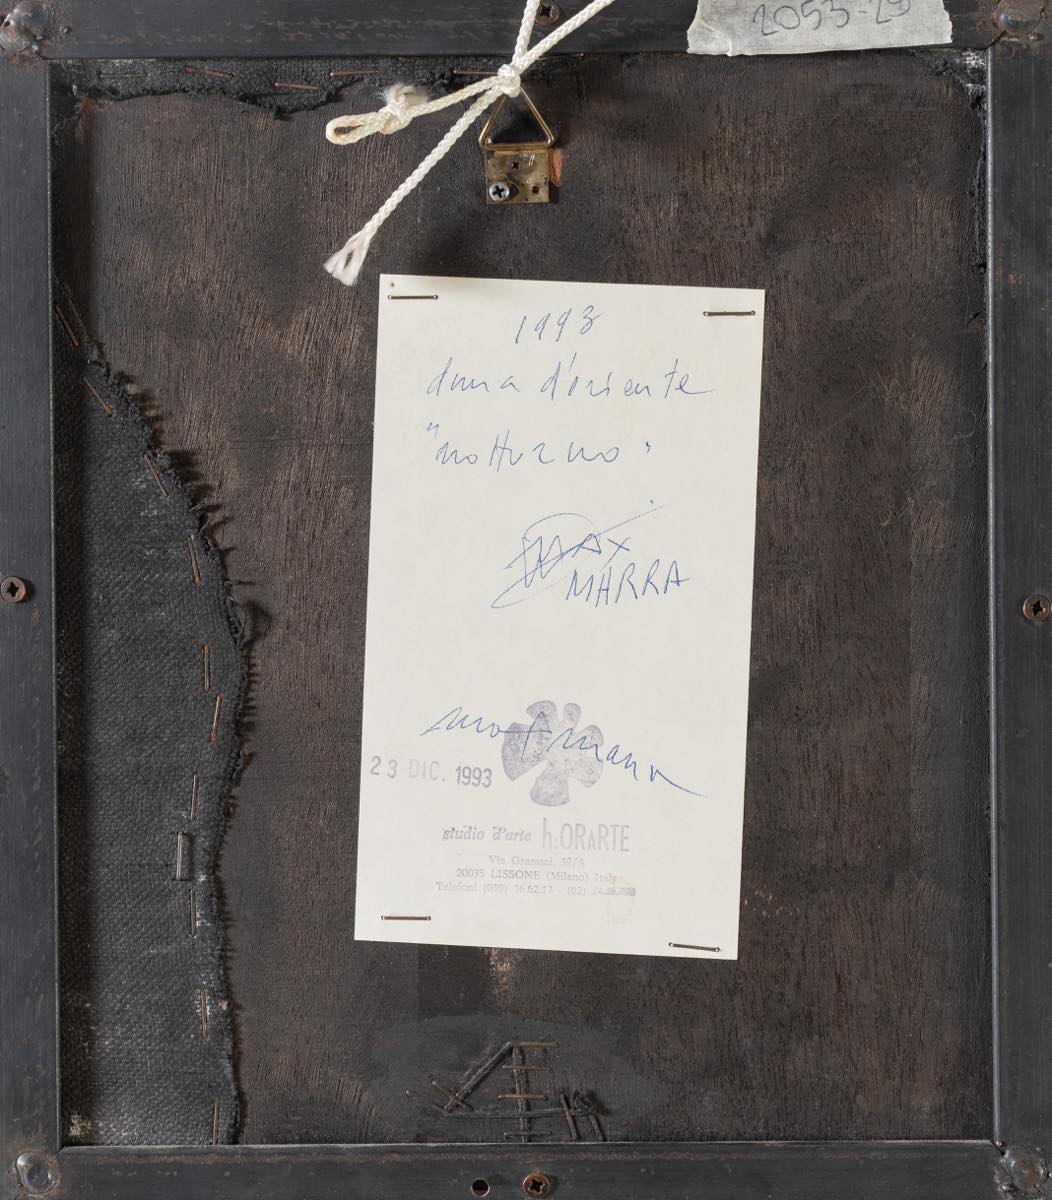 2053-29
1993
duna d'oriente
"notturno"
MAX
MARRA
23 DIC. 1993
studio d'arte h:ORARTE
Via Gramsci, 39/A
20035 LISSONE (Milano) Italy
Telefoni (039) 36.62.17 - (02)